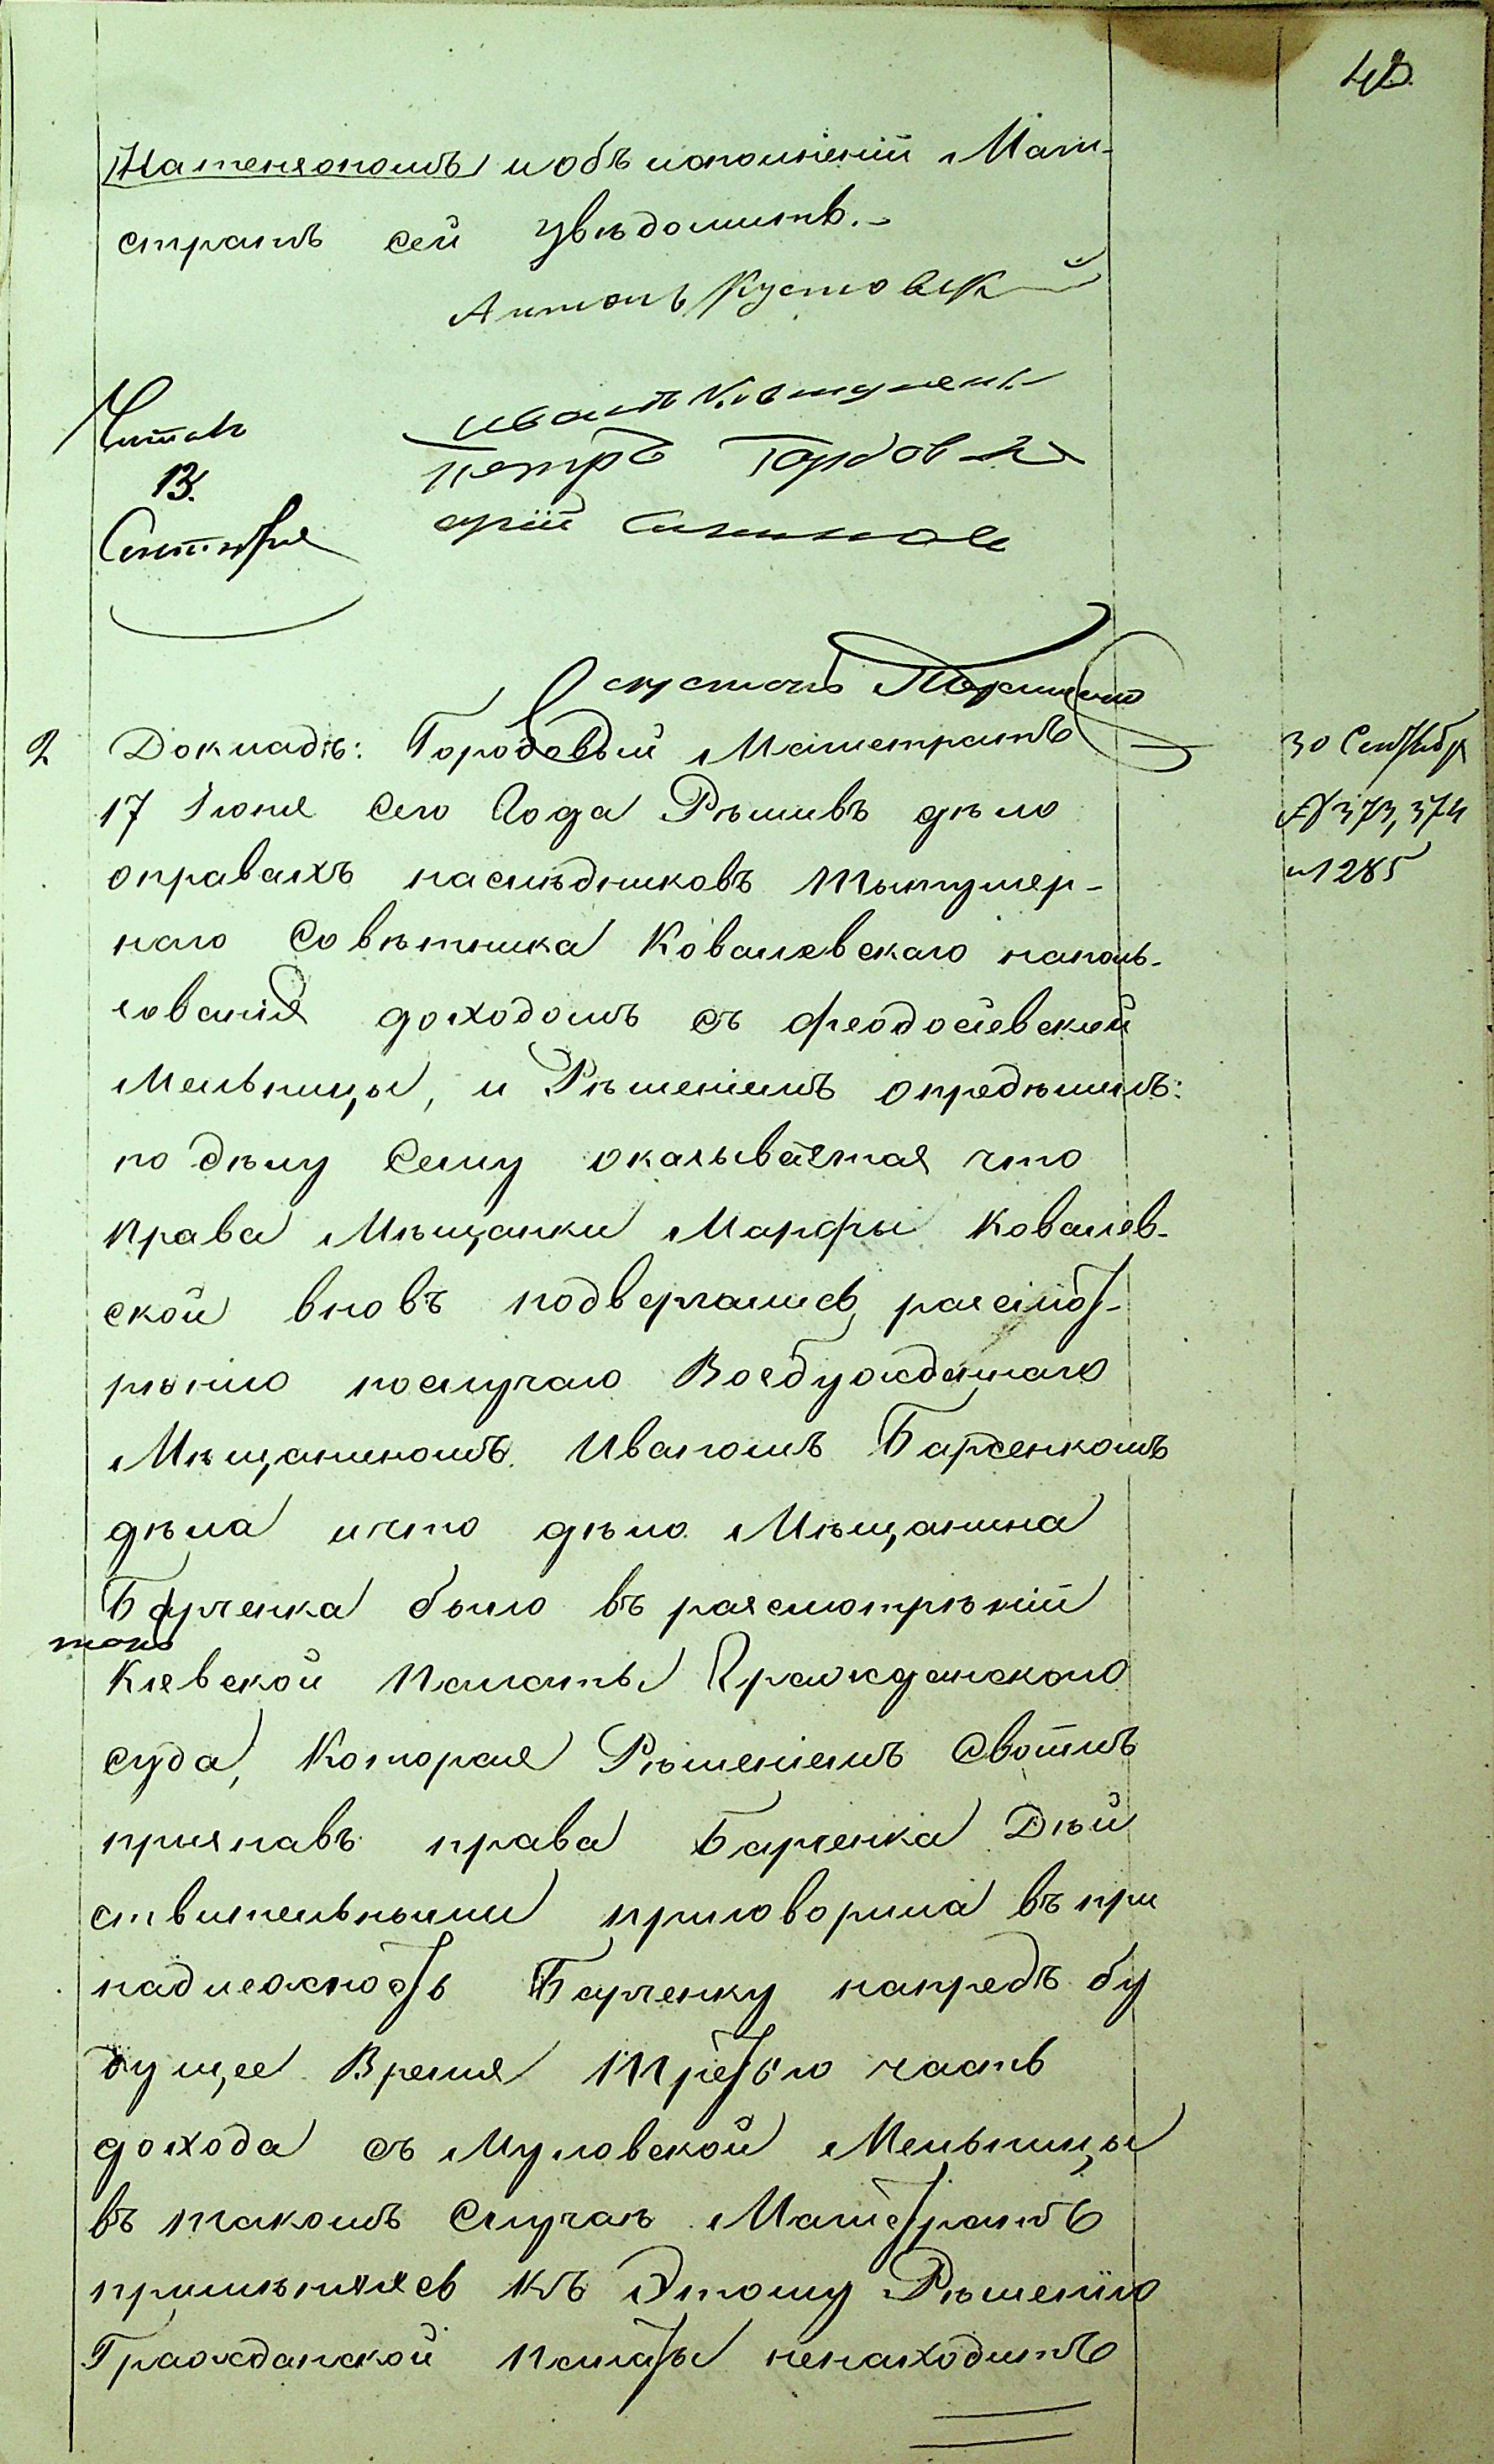 48
и объ исполненіи Маги-
стратъ сей увѣдомить.-
Антонъ Кустовскій
Иванъ
Петръ
Читалъ
13.
Сентября
2 Докладъ: Городовый Магистратъ
30 Сентября
17 Іюня сего Года Рѣшивъ дѣло
№ 373, 374
оправахъ наслѣдниковъ Тытуляр-
и 1285
наго Совѣтника Ковалевскаго наполь-
зованія доходомъ съ Феодосіевской
Мельницы, и Рѣшеніемъ опредѣлилъ:
по дѣлу сему оказывается что
права Мѣщанки Марфы Ковалев-
ской вновь подвергались разсмот-
рѣнію послучаю Возбужденнаго
Мѣщаниномъ Иваномъ Барченкомъ
дѣла ичто дѣло Мѣщанина
Барченка было въ разсмотрѣніи
Кіевской Палаты Гражданскаго
суда, Которая Рѣшеніемъ Своимъ
признавъ права Барченка Дѣй
ствительными приговорила въ при
надлежность Барченку напредь бу
дущее Время Третью часть
дохода съ Муловской Мельницы
въ такомъ Случаѣ Магистратъ
примѣняясь Къ Этому Рѣшенію
Гражданской Палаты ненаходитъ